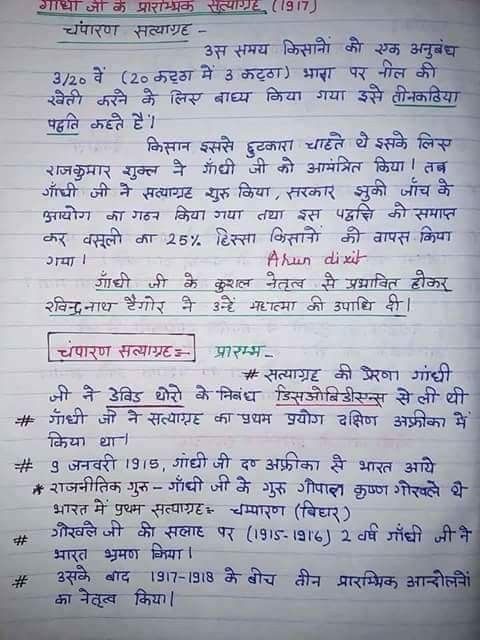 गाँधी जी के प्रारम्भिक सत्याग्रह (1917)
चंपारण सत्याग्रह -
उस समय किसानों को एक अनुबंध
3/20 वें (20 कट्ठा में 3 कट्ठा) भाग पर नील की
खेती करने के लिए बाध्य किया गया इसे तीनकठिया
पद्दति कहते हैं।
किसान इससे छुटकारा चाहते थे इसके लिए
राजकुमार शुक्ल ने गाँधी जी को आमंत्रित किया। तब
गाँधी जी ने सत्याग्रह शुरु किया, सरकार झुकी जाँच के
आयोग का गठन किया गया तथा इस पद्दति को समाप्त
कर वसूली का 25% हिस्सा किसानों को वापस किया
गया।
Arun dixit
गाँधी जी के कुशल नेतृत्व से प्रभावित होकर
रविन्द्रनाथ टैगोर ने उन्हें महात्मा की उपाधि दी।
चंपारण सत्याग्रह:- प्रारम्भ-
# सत्याग्रह की प्रेरणा गांधी
जी ने डेविड थोरो के निबंध डिसओबिडीएन्स से ली थी
# गाँधी जी ने सत्याग्रह का प्रथम प्रयोग दक्षिण अफ्रीका में
किया था।
# 9 जनवरी 1915, गाँधी जी द० अफ्रीका से भारत आये
* राजनीतिक गुरु - गाँधी जी के गुरु गोपाल कृष्ण गोखले थे
भारत में प्रथम सत्याग्रह:- चम्पारण (बिहार)
# गोखले जी की सलाह पर (1915-1916) 2 वर्ष गाँधी जी ने
भारत भ्रमण किया।
# उसके बाद 1917-1918 के बीच तीन प्रारम्भिक आन्दोलनों
का नेतृत्व किया।